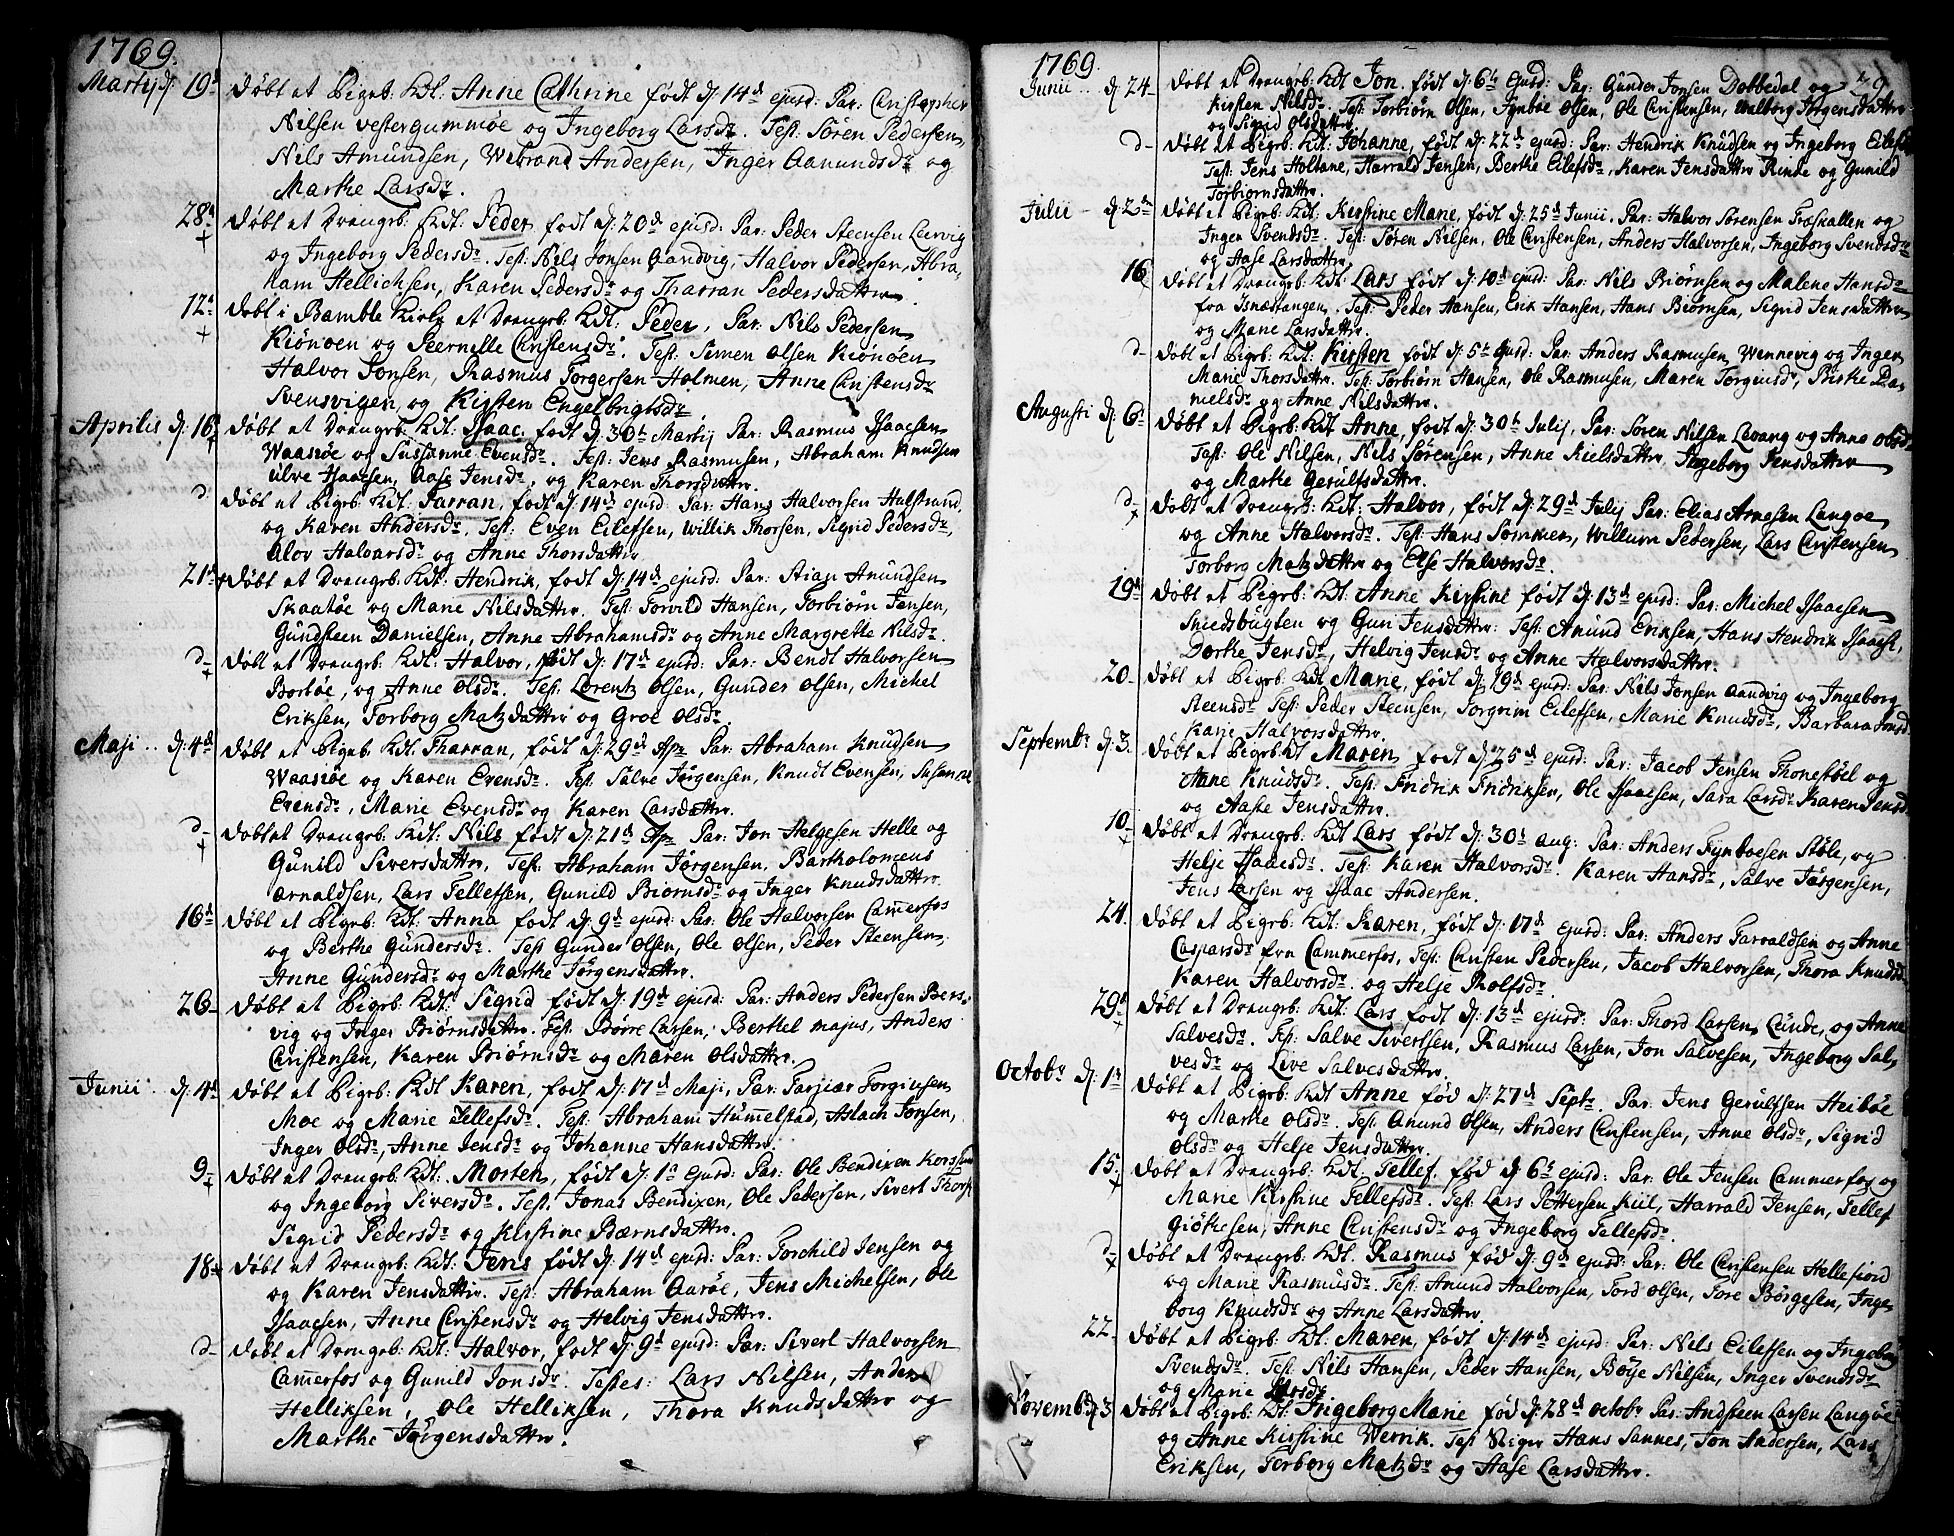 1769.
Martij d: 19d Døbt et Pigeb: Kdt: Anne Cathrine født d: 14d ejusd: Par: Christopher
Nilsen vestergummøe og Ingeborg Larsdr. Test: Sören Pedersen,
Nils Amundsen, Webrand Andersen, Inger Aanundsdr og
Marthe Larsdr.
28d Døbt et Drengb: Kdt: Peder, født d: 20d ejusd: Par: Peder Steensen Lervig
og Ingeborg Pedersdr. Test: Nils Jonsen Aandvig, Halvor Pedersen, Abra,
ham Hellichsen, Karen Pedersdr og Tharran Pedersdattr.
12t Døbt i Bamble Kirke et Drengb: Kdt: Peder, Par: Nils Pedersen
Kiönöen og Peernille Christensdr. Test: Simen Olsen Kiönöen
Halvor Jonsen, Rasmus Torgersen Holmen, Anne Christensdr
Svensvigen og Kirsten Engelbrigtsdr.
Aprilis d: 16 Døbt et Drengb: Kdt: Isaac. født d: 30t Martij Par: Rasmus Isaacsen
Waasöe og Sussanne Evensdr. Test: Jens Rasmusen, Abraham Knudsen
Ulve Isaacsen, Aase Jensdr, og Karen Thorsdattr.
d. Døbt et Pigeb: Kdt: Tarran, født d: 14d ejusd Par: Hans Halvorsen Halstrand,
og Karen Andersdr. Test: Even Eilefsen, Willik Thorsen, Sigrid Pedersdr,
Alov Halvorsdr og Anne Thorsdattr
21d Døbt et Drengb: Kdt: Hendrik, født d: 14d ejusd: Par: Stian Amundsen
Skaatöe og Marie Nilsdattr. Test: Torvild Hansen, Torbiörn Jensen,
Gundsteen Danielsen, Anne Abrahamsdr og Anne Margrethe Nilsdr.
d- Døbt et Drengb: Kdt: Halvor, født d: 17d ejusd: Par: Bendt Halvorsen
Bortöe, og Anne Olsdr. Test: Lorentz Olsen, Gunder Olsen, Michel
Eriksen, Torborg Matzdattr og Groe Olsdr.
Maji.. d: 4d Døbt et Pigeb: Kdt: Tharran, født d: 29d Apr Par: Abraham Knudsen
Waasöe og Karen Evensdr. Test: Salve Jörgensen, Knudt Evensen, Susanne
Evensdr, Marie Evensdr og Karen Larsdattr.
d- Døbt et Drengb: Kdt: Nils født d: 21d Apr Par: Jon Helgesen Helle og
Gunild Siversdattr, Test: Abraham Jörgensen, Bartholomeus
Arnaldsen, Lars Tellefsen, Gunild Biörnsdr og Inger Knudsdattr.
16d Døbt et Pigeb: Kdt: Anna født d: 9d ejusd Par: Ole Halvorsen Camerfos
og Berthe Gundersdr. Test Gunder Olsen, Ole Olsen, Peder Steensen,
Anne Gundersdr og Marthe Jörgensdattr.
26 Døbt et Pigeb: Kdt: Sigrid født d: 19d ejusd: Par: Anders Pedersen Bers,
vig og Inger Biörnsdattr. Test: Börre Larsen, Berthel Majus, Anders
Christensen, Karen Biörnsdr og Maren Olsdattr.
Junii. d: 4d Døbt et Pigeb: Kdt Karen, født d: 17d Maji, Par: Tarjiær Torginsen
Moe og Marie Tellefsdr. Test: Abraham Hummelstad, Aslach Jonsen,
Inger Olsdr, Anne Jensdr og Johanne Hansdattr.
9 Døbt et Drengb: Kdt: Morten, født d: 1t ejusd: Par: Ole Bendixen
og Ingeborg Siversdr. Test. Jonas Bendixen, Ole Pedersen, Sivert Thors
Sigrid Pedersdr og Kirstine Bærnsdattr.
18 Døbt et Drengb: Kdt: Jens født d: 14d ejusd: Par: Torchild Jensen og
og Karen Jensdattr. Test: Abraham Aaröe, Jens Michelsen, Ole
Isaacsen, Anne Christensdr og Helvig Jensdattr.
d- Døbt et Drengb: Kdt: Halvor, født d: 9d ejusd: Par: Sivert Halvorsen
Camerfos og Gunild Jonsdr. Testes: Lars Nilsen, Anders
Helliksen, Ole Helliksen, Thora Knudsdattr og
Marthe Jörgensdattr.
1769. 39
Junii.. d: 24 Døbt et Drengb: Kdt Jon, født d: 6t ejusd: Par: Gunder Jonsen Dobbedal og
Kirsten Nilsdr. Test: Torbiörn Olsen, Fynboe Olsen, Ole Christensen, Walborg Jörgensdattr
og Sigrid Olsdattr.
d- Døbt et Pigeb: Kdt: Johanne, født d: 22d ejusd: Par: Hendrik Knudsen og Ingeborg Eilefsd
Test: Jens Holtane, Harrald Jensen, Berthe Eilefsdr, Karen Jensdattr Rinde og Gunild
Torbiörnsdattr.
Julii - d: 2d Døbt et Pigeb: Kdt: Kirstine Marie, født d: 25d Junii. Par: Halvor Sörensen Fosskallen og
Inger Svendsdr. Test: Sören Nilsen, Ole Christensen, Anders Halvorsen, Ingeborg Svendsdr
og Aase Larsdattr.
16 Døbt et Drengb: Kdt: Lars født d: 10d ejusd: Par: Nils Biörnsen og Malene Hansdr
fra Isnæstangen. Test: Peder Hansen, Erik Hansen, Hans Biörnsen, Sigrid Jensdattr
og Marie Larsdattr.
d- Døbt et Pigeb: Kdt: Kirsten født d: 5t ejusd: Par: Anders Rasmusen Wennevig og Inger
Marie Thorsdattr. Test: Torbiörn Hansen, Ole Rasmusen, Maren Torginsdr, Birthe Da,
nielsdr og Anne Nilsdattr.
Augusti d: 6t Døbt et Pigeb: Kdt Anne, født d: 30t Julij, Par: Sören Nilsen Levang og Anne Olsdr
Test: Ole Nilsen, Nils Sörensen, Anne Kielsdattr, Ingeborg Jensdattr
og Marthe Gerulfsdattr.
d- Døbt et Drengb: Kdt: Halvor, født d: 29d Julij Par: Elias Arnesen Langöe
og Anne Halvorsdr. Test: Hans Sommer, Willum Pedersen, Lars Christensen
Torborg Matzdattr og Else Halvorsdr.
19d Døbt et Pigeb: Kdt: Anne Kirstine født d: 13d ejusd: Par: Michel Isaacsen
Smedsbugten og Guri Jensdattr: Test: Amund Eriksen, Hans Hendrik Isaacs,
Dorthe Jensdr, Helvig Jensdr og Anne Halvorsdattr.
20. Døbt et Pigeb: Kdt Marie, født d: 19d ejusd: Par: Nils Jonsen Aandvig og Ingeborg
Steensdr Test: Peder Steensen, Torgrim Eilefsen, Marie Knudsdr, Barbara Jonsd
Karie Halvorsdattr.
Septembr d: 3. Døbt et Pigeb: Kdt Maren, født d: 25d ejusd: Par: Jacob Jensen Thonestöel og
Anne Knudsdr. Test: Fridrik Fridriksen, Ole Isaacsen, Sara Larsdr Karen Jensd
og Aase Jensdattr.
10 Døbt et Drengb: Kdt Lars født d: 30t Aug: Par: Anders Fynboesen Stöle, og
Helje Isaacsdr. Test: Karen Halvorsdr. Karen Hansdr, Salve Jörgensen,
Jens Larsen og Isaac Andersen.
24. Døbt et Pigeb: Kdt: Karen, født d: 17d ejusd: Par: Anders Taraldsen og Anne
Caspersdr fra Cammerfos, Test: Christen Pedersen, Jacob Halvorsen, Thora Knudsd
Karen Halvorsdr. og Helje Rolfsdr.
29d Døbt et Drengb: Kdt: Lars, født d: 13d ejusd: Par: Thord Larsen Lunde, og Anne
Salvesdr. Test: Salve Sivertsen, Rasmus Larsen, Jon Salvesen, Ingeborg Sal,
vesdr og Live Salvesdattr.
Octobr d: 1t Døbt et Pigeb: Kdt Anne fød d: 27d Septr Par: Jens Gerulfsen Heiböe
og Marthe Olsdr. Test: Anund Olsen, Anders Christensen, Anne Olsdr, Sigrid
Olsdr og Helje Jensdattr.
15 Døbt et Drengb: Kdt: Tellef. fød d: 6t ejusd: Par: Ole Jensen Cammerfos og
Marie Kirstine Tellefsdr. Test: Lars Pettersen Kiil, Harrald Jensen, Tellef
Giöthesen, Anne Christensdr og Ingeborg Tellefsdr.
d- Døbt et Drengb: Kdt. Rasmus fød d: 9d ejusd: Par: Ole Christensen Hellefiord
og Marie Rasmusdr. Test: Anund Halvorsen, Tord Olsen, Tore Börgesen, Inge
borg Knudsdr og Anne Larsdattr.
22. Døbt et Pigeb: Kdt: Maren, født d: 14d ejusd: Par: Nils Eilefsen og Ingeborg
Svendsdr. Test: Nils Hansen, Peder Hansen, Böije Nilsen, Inger Svendsdr
og Marie
Novemb: d: 3 Døbt et Pigeb: Kdt: Ingeborg Marie fød d: 28d Octobr Par: Andsteen Larsen Langöe
og Anne Kirstine Werrik. Test Reiger Hans Sannes, Jon Andersen, Lars
Eriksen, Torborg Matzdr og Aase Larsdattr.